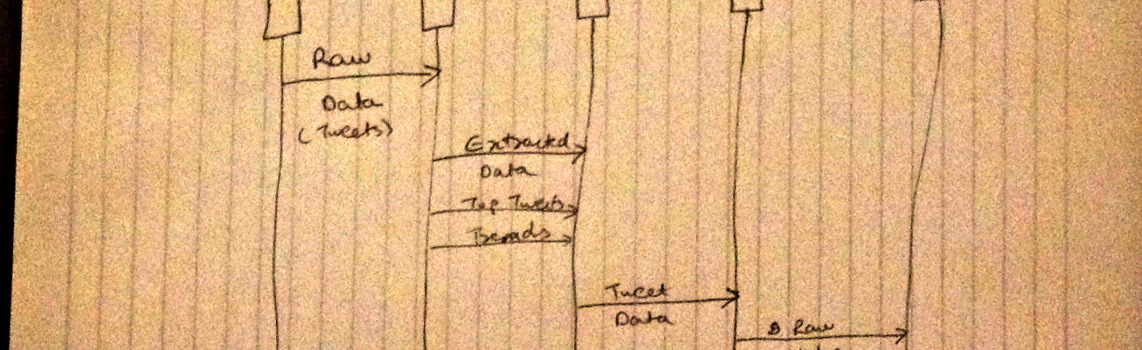 Raw
Data
(Tweets)
Extracted
Data
Top Tweets
Trends
Tweet
Data
Raw